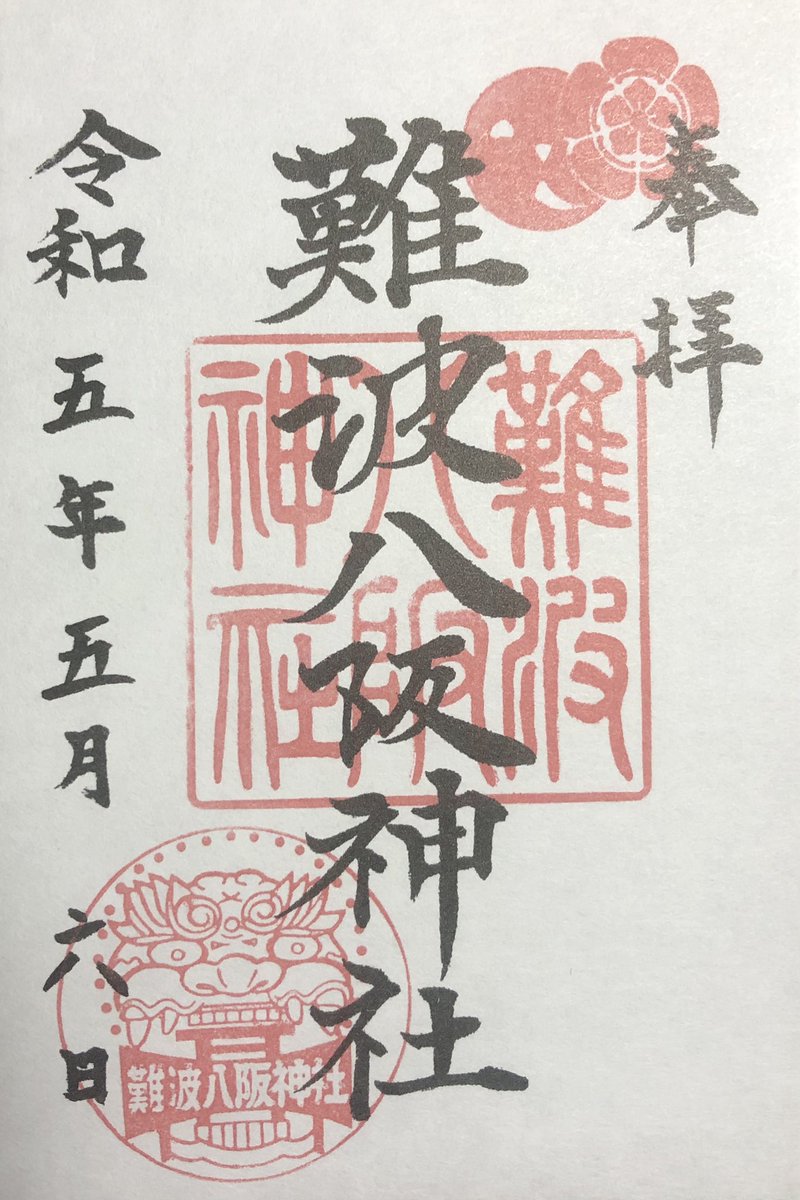 奉拝
難波八阪神社
難波
八阪
神社
令和五年五月六日
難波八阪神社